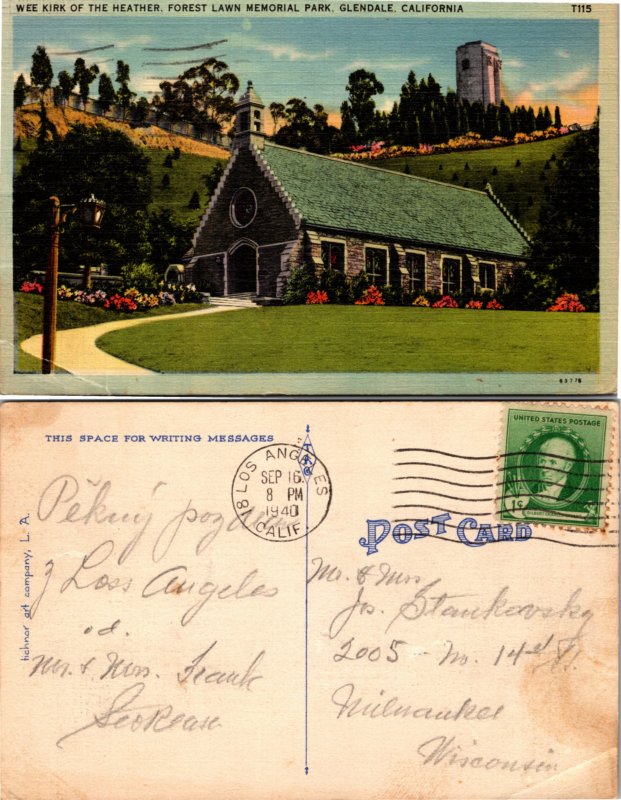 WEE KIRK OF THE HEATHER, FOREST LAWN MEMORIAL PARK, GLENDALE, CALIFORNIA T115
63776
THIS SPACE FOR WRITING MESSAGES
tichnor art company, L. A.
LOS ANGELES 18
SEP 16
8 PM
1940
CALIF.
UNITED STATES POSTAGE
1¢
POST CARD
Pěkný pozdrav
z Loss Angeles
od.
Mr. & Mrs. Frank
Mr. & Mrs
Js. Stankovsky
2005 - No. 14th St.
Milwaukee
Wisconsin